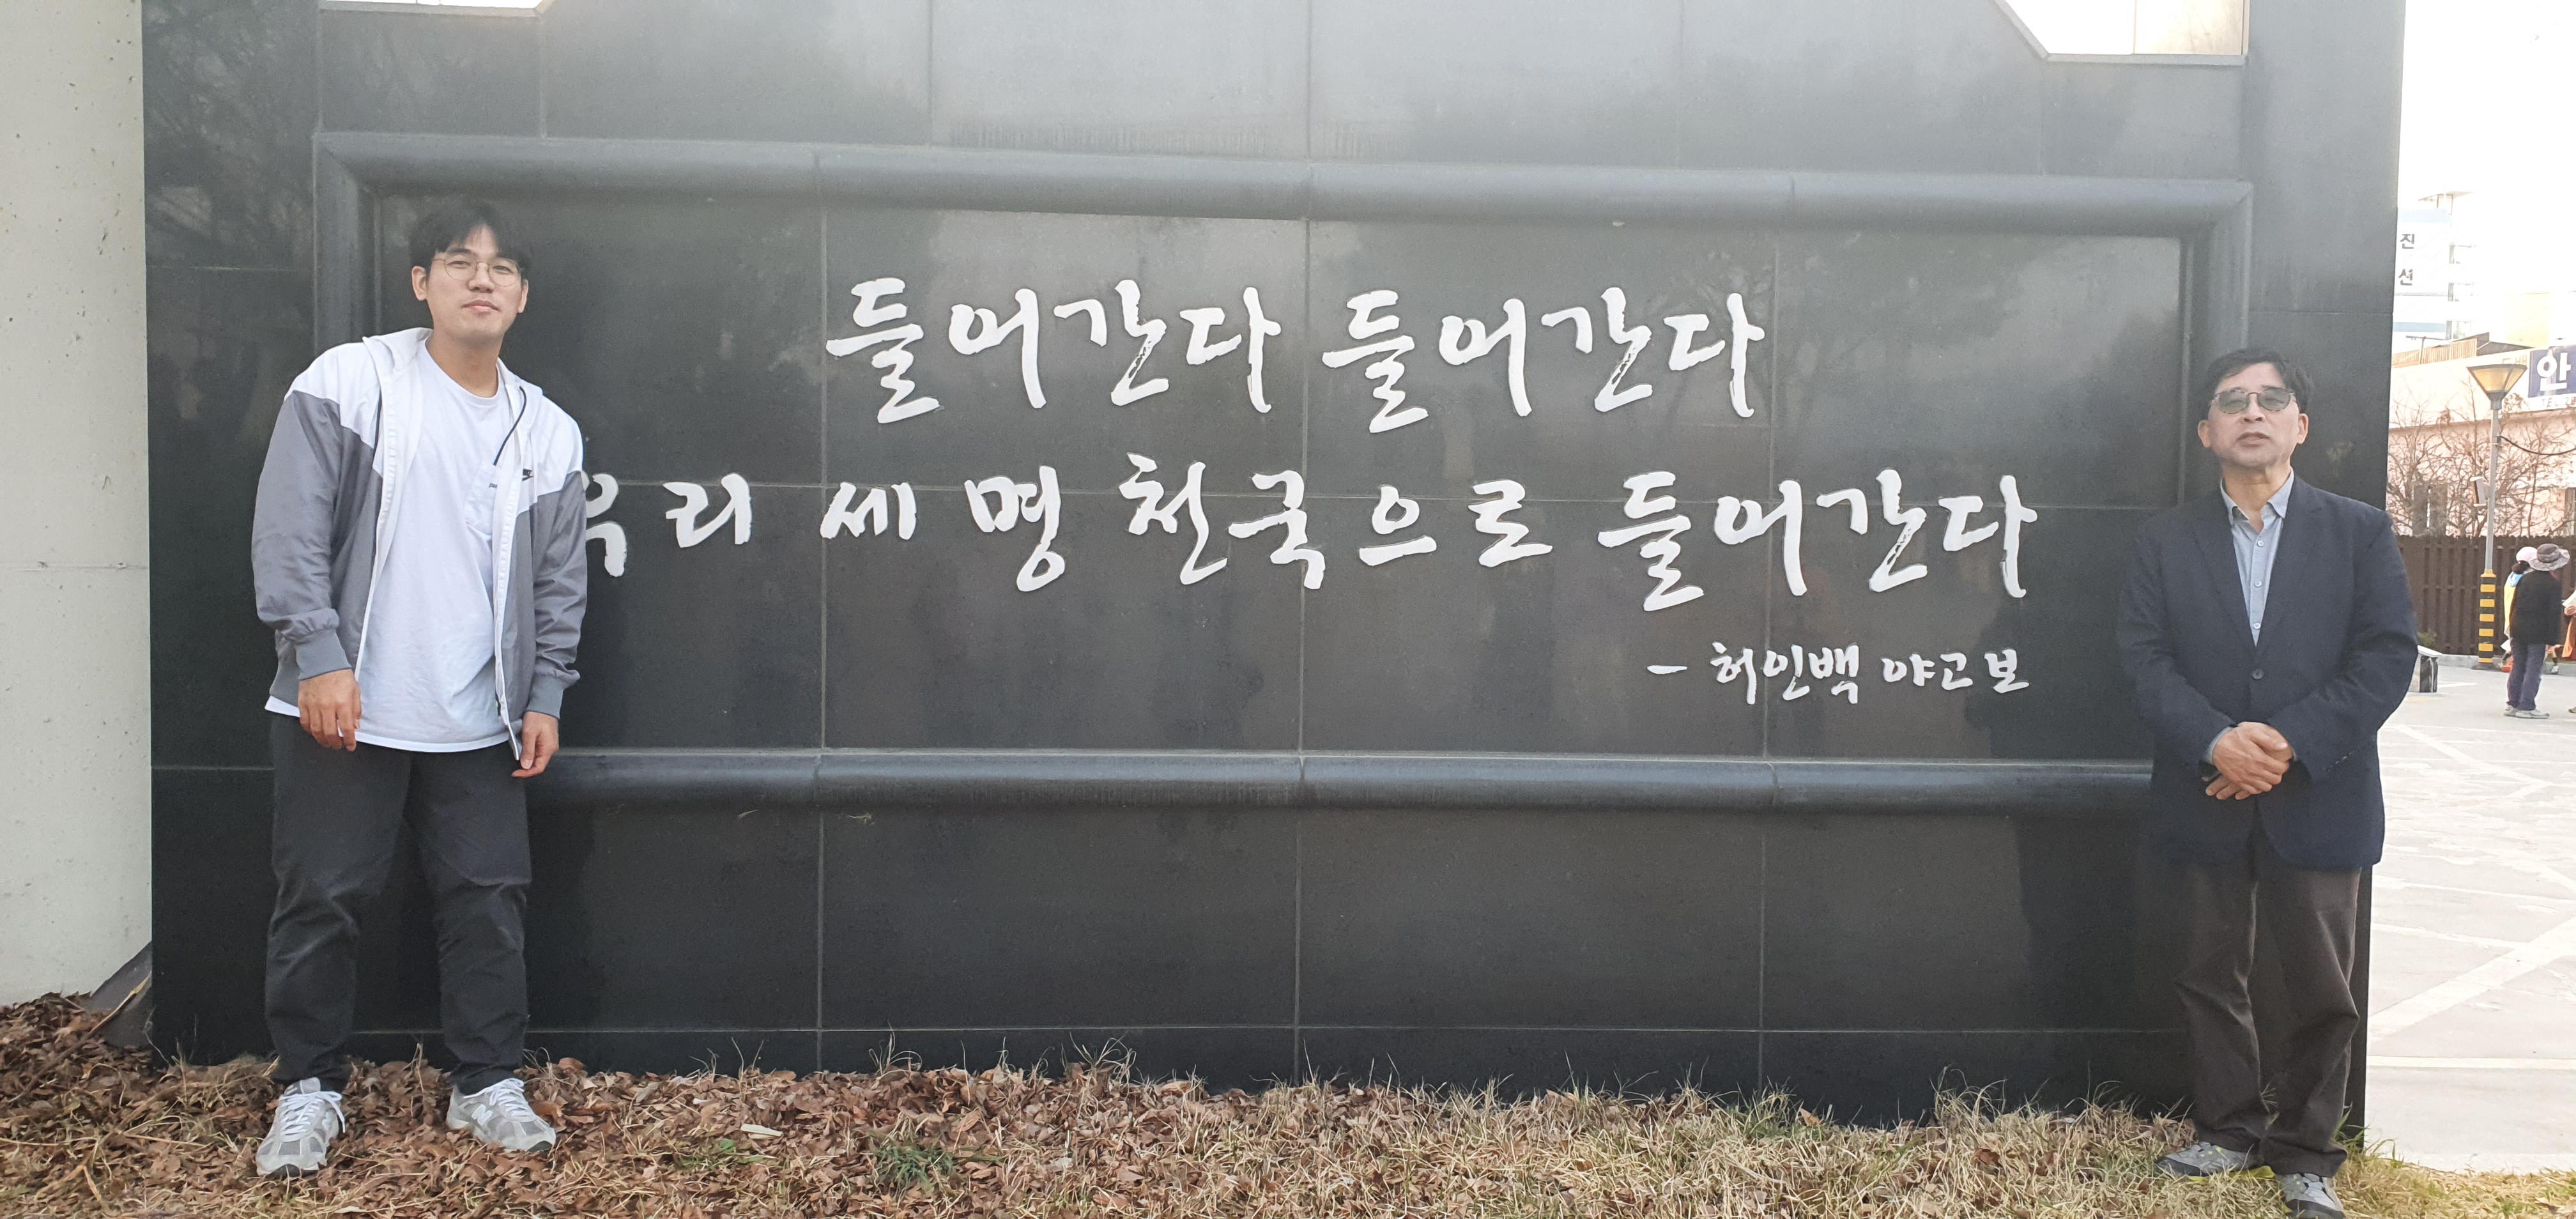 들어간다 들어간다
우리 세 명 천국으로 들어간다
- 허인백 야고보
진
션
안